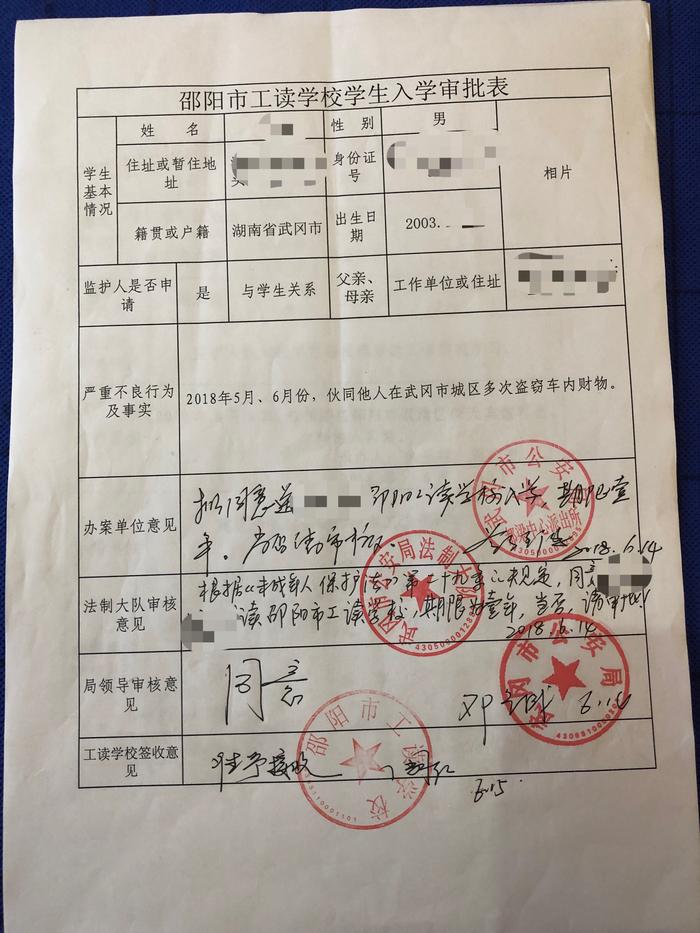 邵阳市工读学校学生入学审批表
学生基本情况
姓 名
性 别
男
相片
住址或暂住地址
身份证号
籍贯或户籍
湖南省武冈市
出生日期
2003.
监护人是否申请
是
与学生关系
父亲、母亲
工作单位或住址
严重不良行为及事实
2018年5月、6月份，伙同他人在武冈市城区多次盗窃车内财物。
办案单位意见
拟同意送
邵阳工读学校入学 期限壹
年。
2018.6.14
武冈市公安局
中心派出所
法制大队审核意见
根据《未成年人保护法》第二十九条之规定，同意
读邵阳市工读学校，期限为壹年，当否，请审批！
2018.6.14
武冈市公安局法制大队
局领导审核意见
同意
邓
6.14
武冈市公安局
工读学校签收意见
准予接收
6.15
邵阳市工读学校